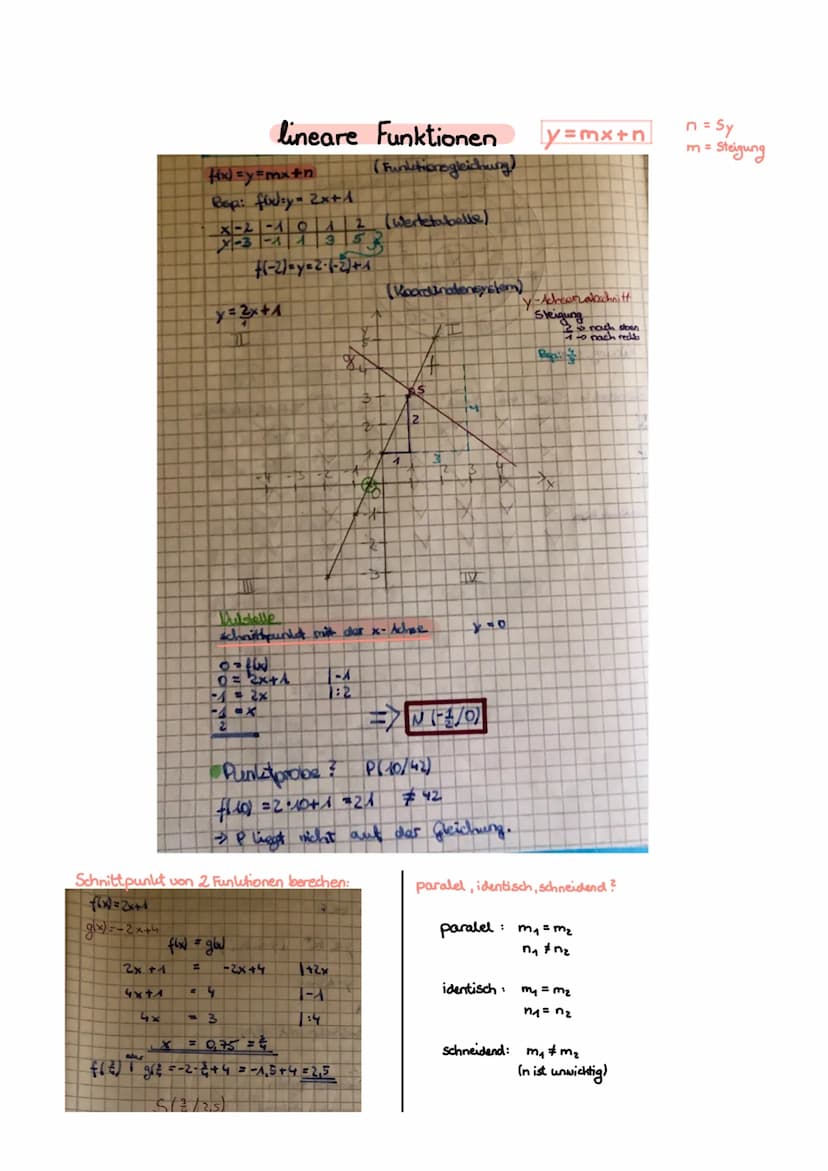 lineare Funktionen y=mx+n
n = Sy
m = Steigung
f(x)=y=mx+n (Funktionsgleichung)
Bsp: f(x)=y= 2x+1
x -2 -1 0 1 2 (Wertetabelle)
y -3 -1 1 3 5
f(-2)=y=2·(-2)+1
(Koordinatensystem)
y-Achsenabschnitt
y = 2x+1
1
Steigung
2 → nach oben
1 → nach rechts
II
I
Bsp: 4/3
y
5
g 4
f
S
3
4
2
2
1
1
3
-4 -3 -2 -1 1 2 3 4 x
-1
-2
-3
III IV
Nullstelle
Schnittpunkt mit der x-Achse y=0
0 = f(x)
0 = 2x+1 |-1
-1 = 2x |:2
-1/2 = x
=> N (-1/2/0)
Punktprobe? P(10/42)
f(10) = 2·10+1 = 21 ≠ 42
→ P liegt nicht auf der Gleichung.
Schnittpunkt von 2 Funktionen berechen:
f(x)=2x+1
g(x)=-2x+4
f(x) = g(x)
2x +1 = -2x+4 |+2x
4x+1 = 4 |-1
4x = 3 |:4
x = 0,75 = 3/4
oder
f(3/4) g(3/4) = -2·3/4+4 = -1,5+4 = 2,5
S(3/4/2,5)
paralel, identisch, schneidend?
paralel : m₁ = m₂
n₁ ≠ n₂
identisch : m₁ = m₂
n₁ = n₂
schneidend: m₁ ≠ m₂
(n ist unwichtig)